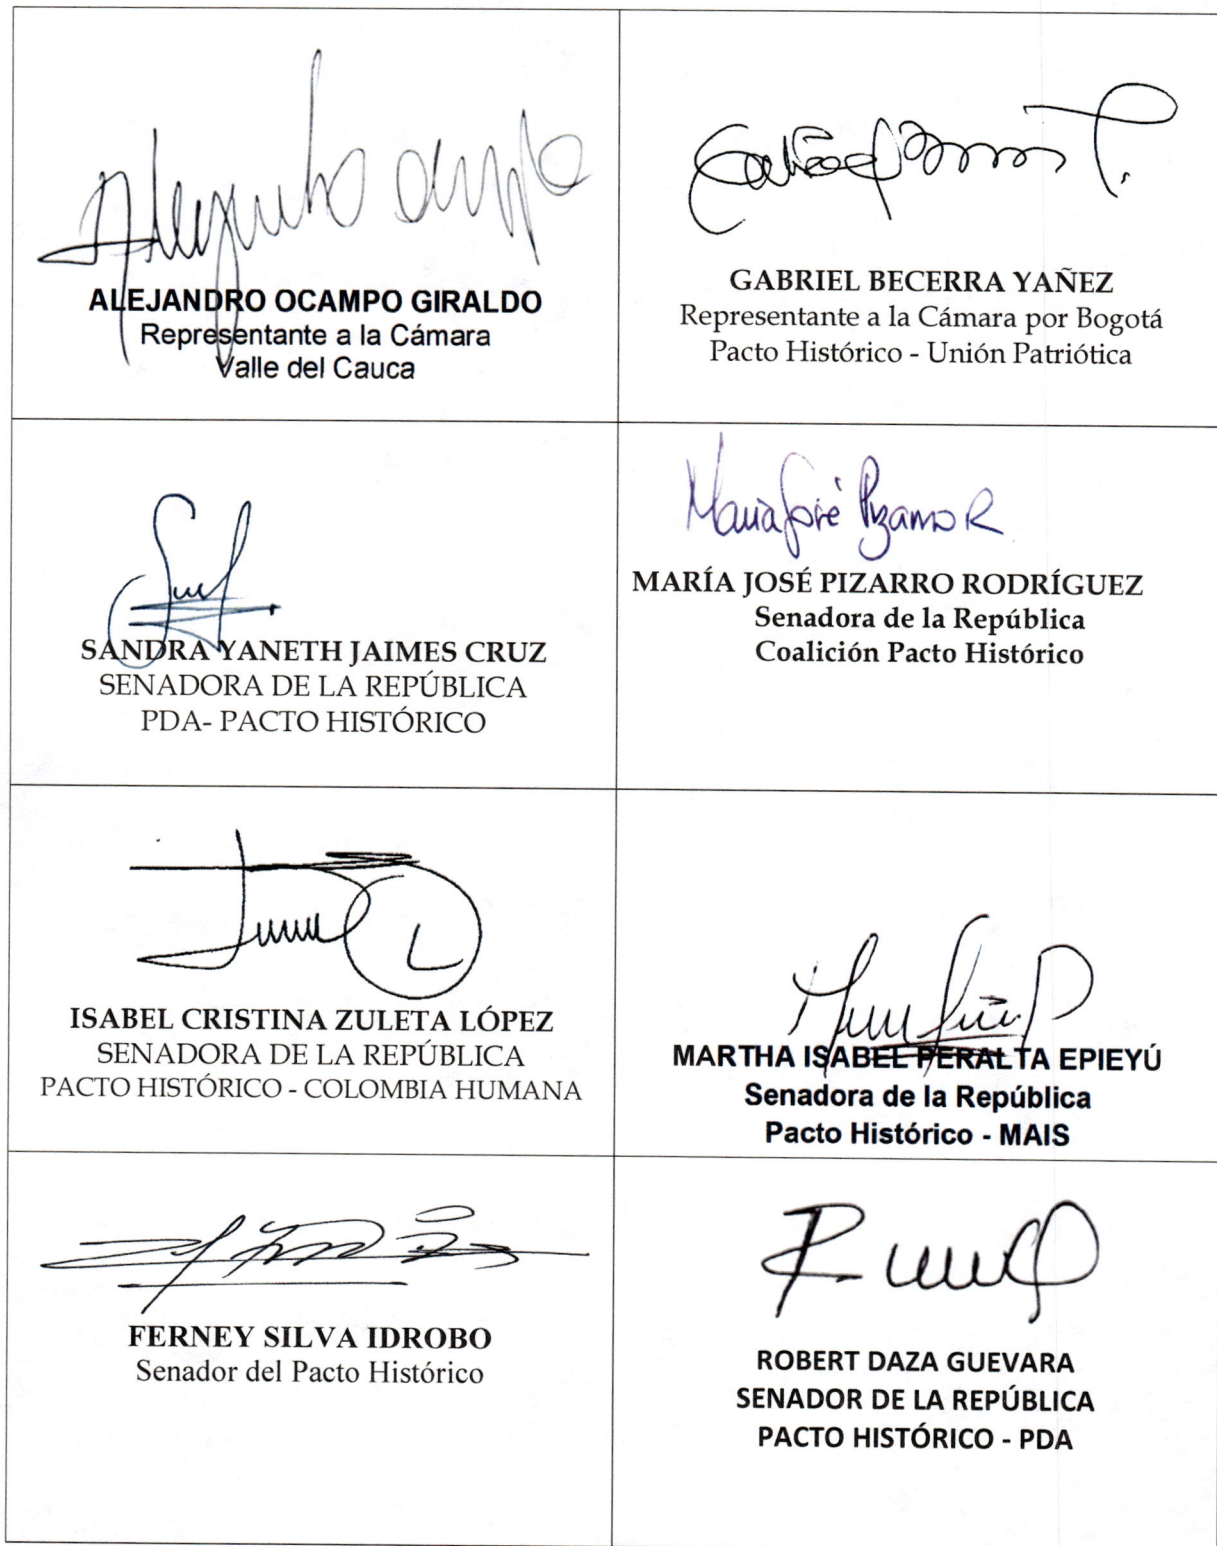 Alejandro Ocampo
ALEJANDRO OCAMPO GIRALDO
Representante a la Cámara
Valle del Cauca
GABRIEL BECERRA YAÑEZ
Representante a la Cámara por Bogotá
Pacto Histórico - Unión Patriótica
SANDRA YANETH JAIMES CRUZ
SENADORA DE LA REPÚBLICA
PDA- PACTO HISTÓRICO
María José Pizarro R
MARÍA JOSÉ PIZARRO RODRÍGUEZ
Senadora de la República
Coalición Pacto Histórico
ISABEL CRISTINA ZULETA LÓPEZ
SENADORA DE LA REPÚBLICA
PACTO HISTÓRICO - COLOMBIA HUMANA
MARTHA ISABEL PERALTA EPIEYÚ
Senadora de la República
Pacto Histórico - MAIS
FERNEY SILVA IDROBO
Senador del Pacto Histórico
ROBERT DAZA GUEVARA
SENADOR DE LA REPÚBLICA
PACTO HISTÓRICO - PDA